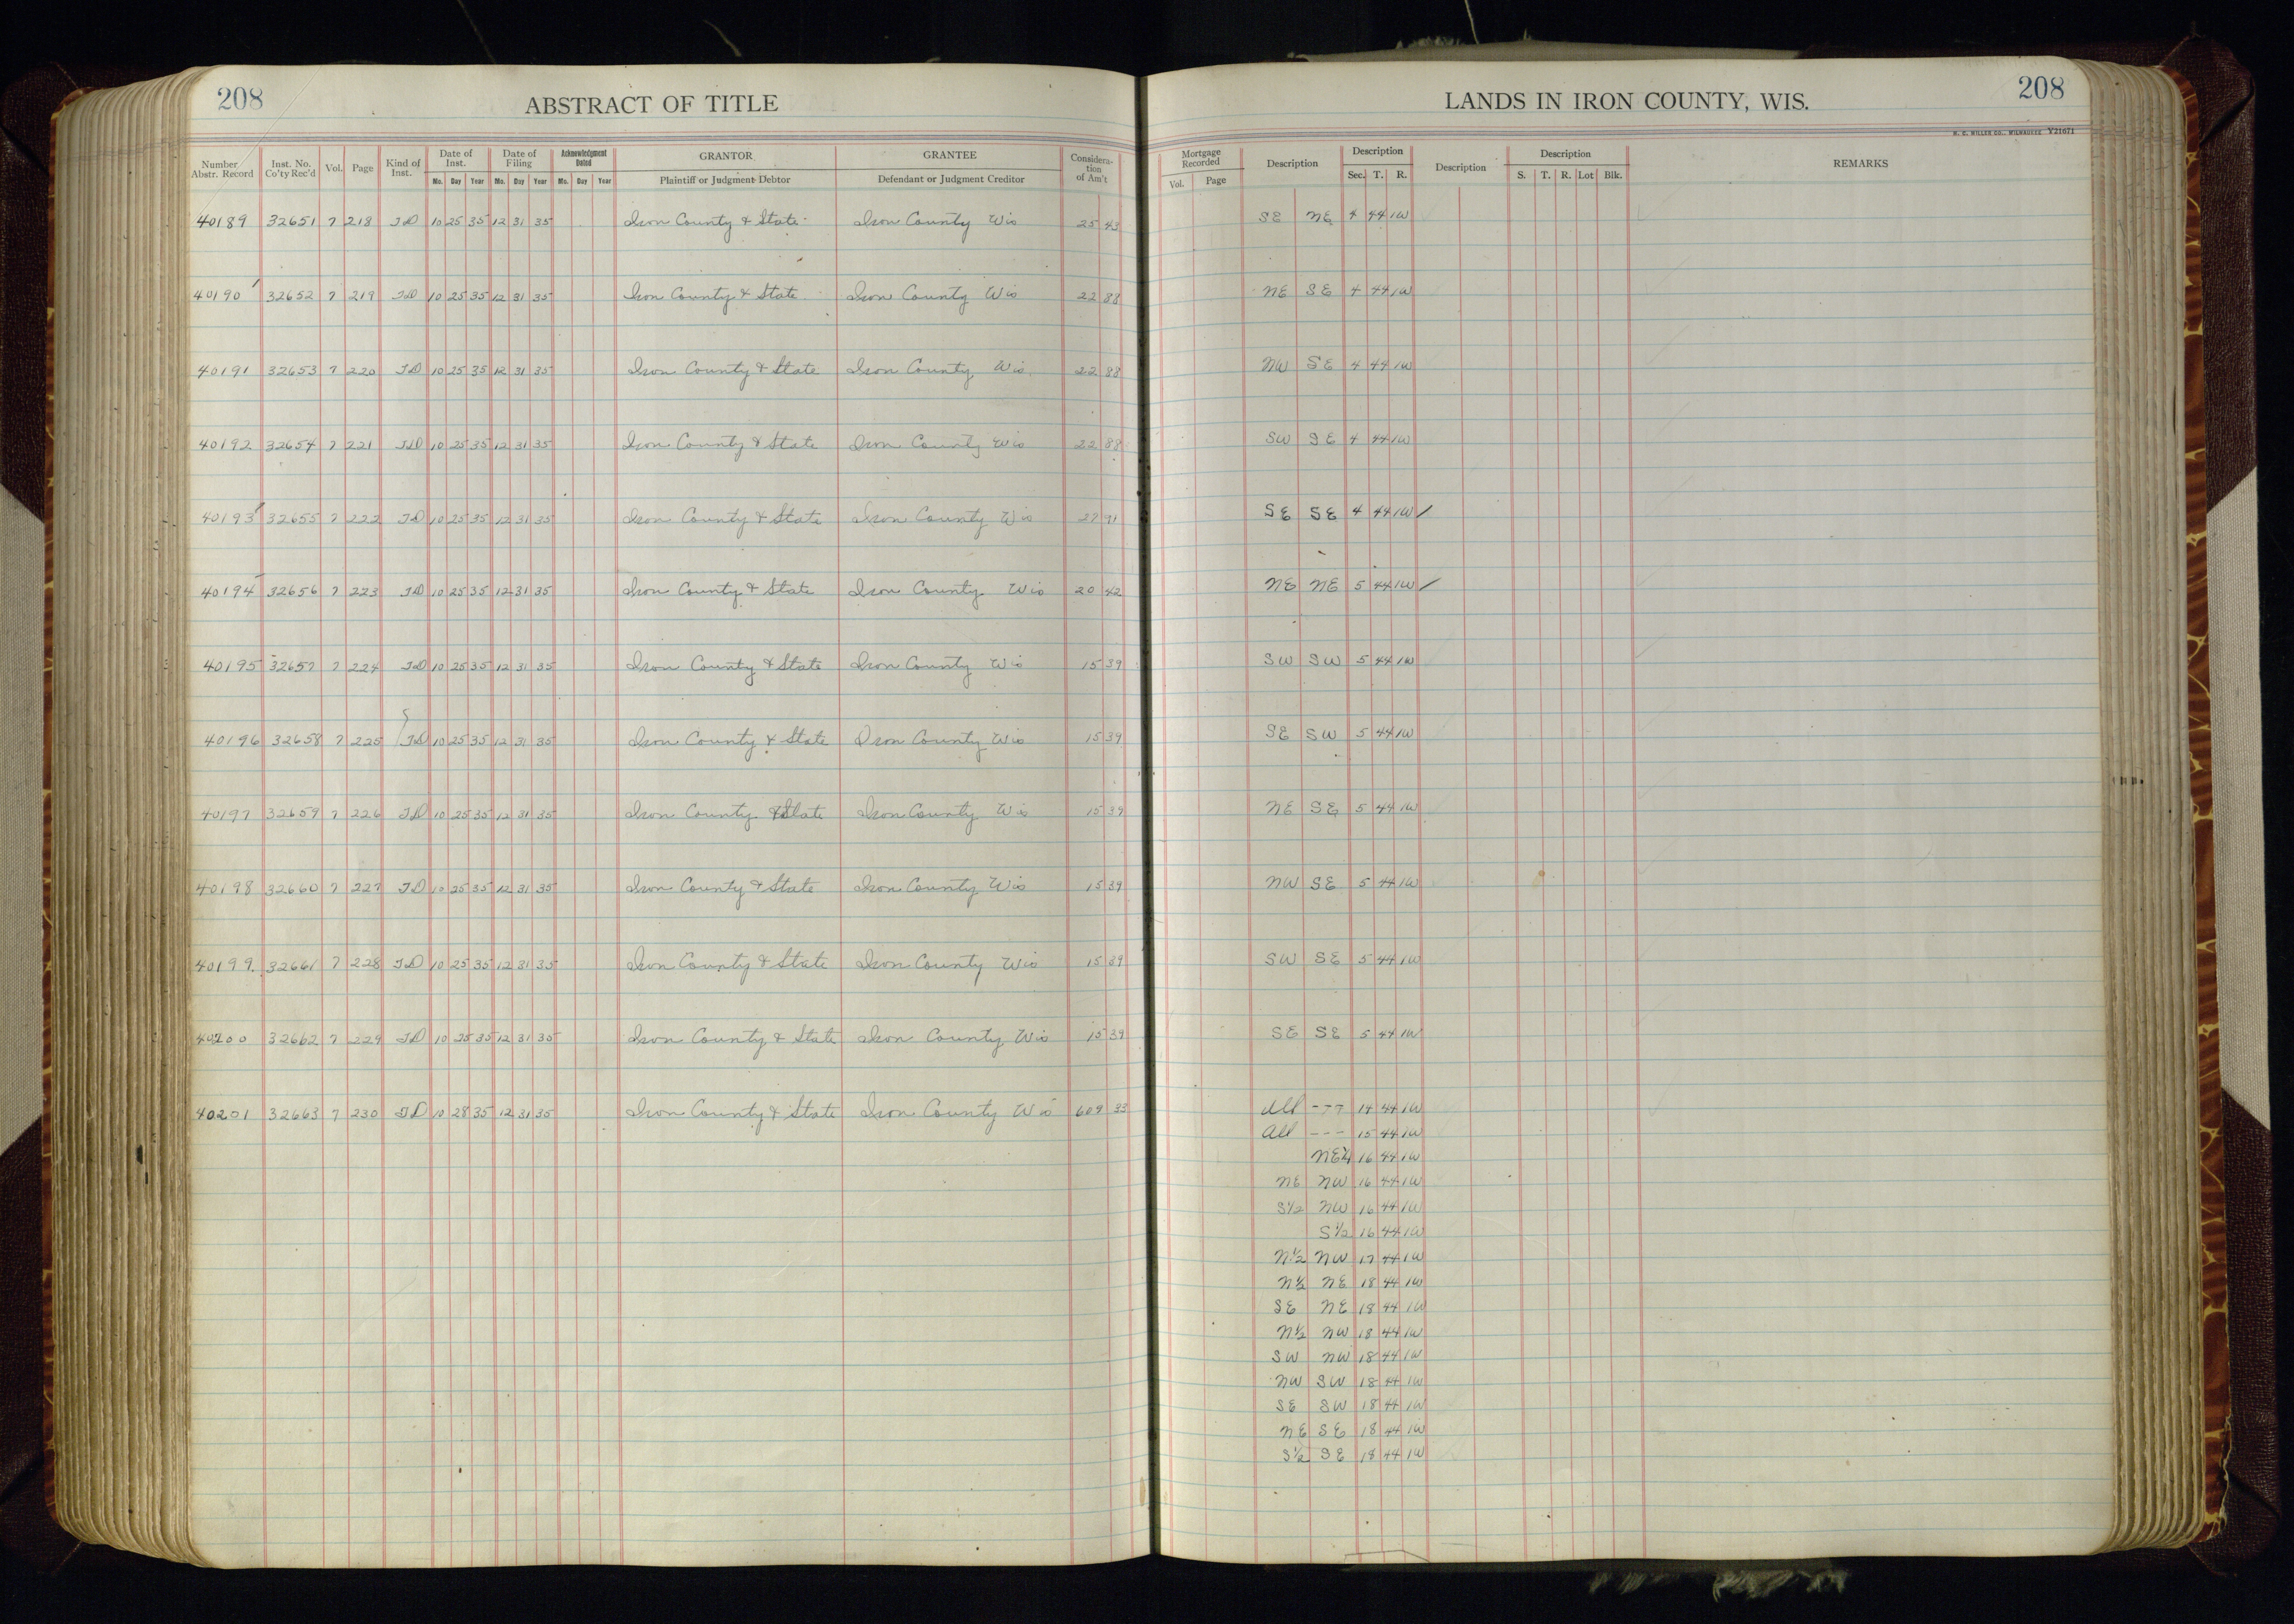 208 ABSTRACT OF TITLE LANDS IN IRON COUNTY, WIS. 208
H. C. MILLER CO., MILWAUKEE Y21671
Number Abstr. Record Inst. No. Co'ty Rec'd Vol. Page Kind of Inst. Date of Inst. Mo. Day Year Date of Filing Mo. Day Year Acknowledgment Dated Mo. Day Year GRANTOR Plaintiff or Judgment Debtor GRANTEE Defendant or Judgment Creditor Consideration of Am't Mortgage Recorded Vol. Page Description Description Sec. T. R. Description Description S. T. R. Lot Blk. REMARKS
40189 32651 7 218 TD 10 25 35 12 31 35 Iron County & State Iron County Wis 25 43 SE NE 4 44 1W
40190 32652 7 219 TD 10 25 35 12 31 35 Iron County & State Iron County Wis 22 88 NE SE 4 44 1W
40191 32653 7 220 TD 10 25 35 12 31 35 Iron County & State Iron County Wis. 22 88 NW SE 4 44 1W
40192 32654 7 221 TD 10 25 35 12 31 35 Iron County & State Iron County Wis 22 88 SW SE 4 44 1W
40193 32655 7 222 TD 10 25 35 12 31 35 Iron County & State Iron County Wis 27 91 SE SE 4 44 1W
40194 32656 7 223 TD 10 25 35 12 31 35 Iron County & State Iron County Wis 20 42 NE NE 5 44 1W
40195 32657 7 224 TD 10 25 35 12 31 35 Iron County & State Iron County Wis 15 39 SW SW 5 44 1W
40196 32658 7 225 TD 10 25 35 12 31 35 Iron County & State Iron County Wis 15 39 SE SW 5 44 1W
40197 32659 7 226 TD 10 25 35 12 31 35 Iron County & State Iron County Wis 15 39 NE SE 5 44 1W
40198 32660 7 227 TD 10 25 35 12 31 35 Iron County & State Iron County Wis 15 39 NW SE 5 44 1W
40199 32661 7 228 TD 10 25 35 12 31 35 Iron County & State Iron County Wis 15 39 SW SE 5 44 1W
40200 32662 7 229 TD 10 25 35 12 31 35 Iron County & State Iron County Wis 15 39 SE SE 5 44 1W
40201 32663 7 230 TD 10 28 35 12 31 35 Iron County & State Iron County Wis 609 33 All --- 14 44 1W
All --- 15 44 1W
NE¼ 16 44 1W
NE NW 16 44 1W
S½ NW 16 44 1W
S½ 16 44 1W
N½ NW 17 44 1W
N½ NE 18 44 1W
SE NE 18 44 1W
N½ NW 18 44 1W
SW NW 18 44 1W
NW SW 18 44 1W
SE SW 18 44 1W
NE SE 18 44 1W
S½ SE 18 44 1W